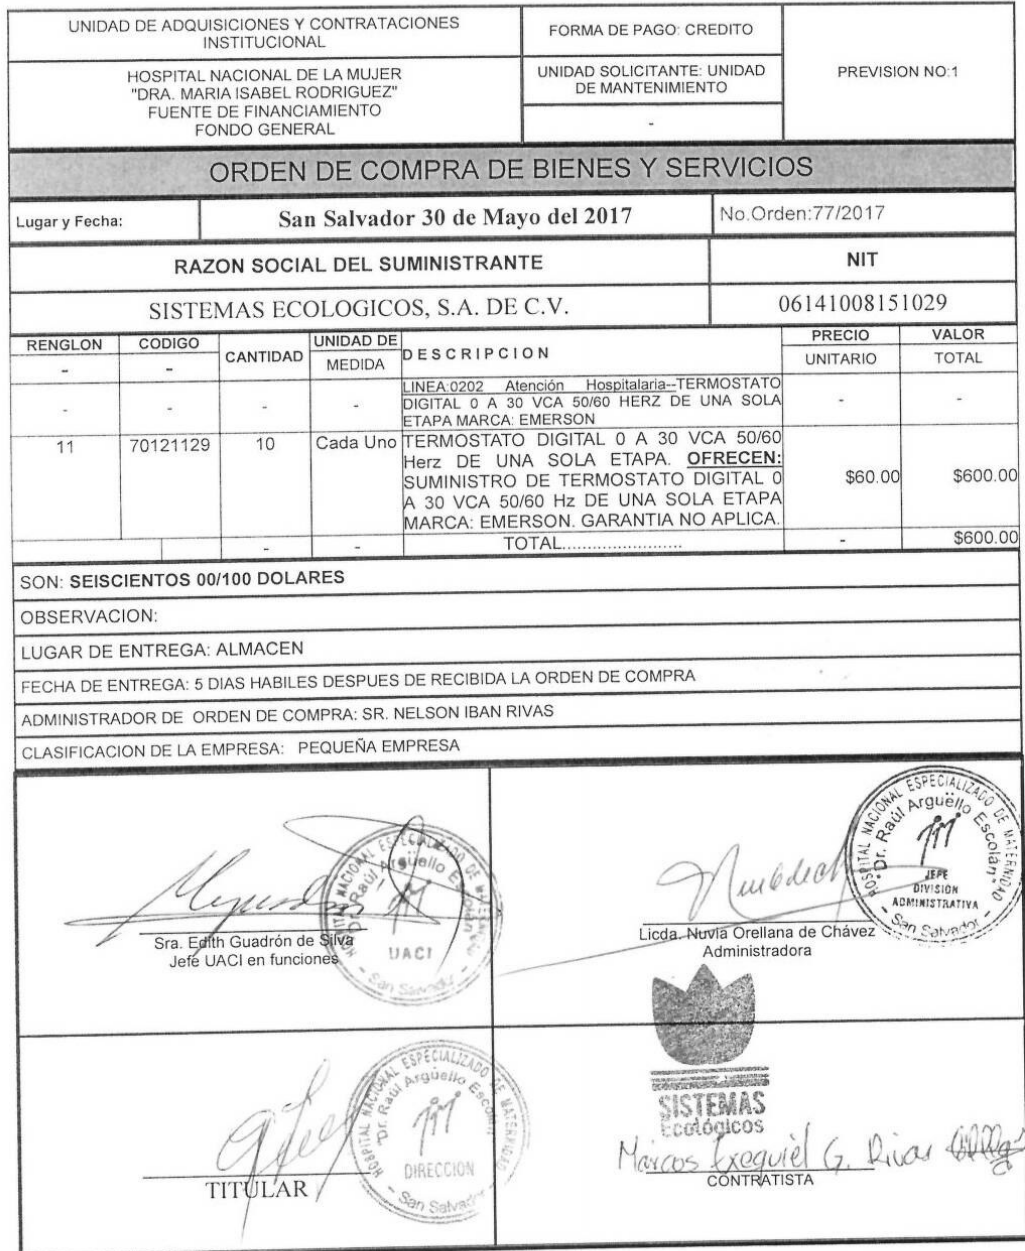 UNIDAD DE ADQUISICIONES Y CONTRATACIONES
INSTITUCIONAL
FORMA DE PAGO: CREDITO
PREVISION NO:1
HOSPITAL NACIONAL DE LA MUJER
"DRA. MARIA ISABEL RODRIGUEZ"
FUENTE DE FINANCIAMIENTO
FONDO GENERAL
UNIDAD SOLICITANTE: UNIDAD
DE MANTENIMIENTO
-
ORDEN DE COMPRA DE BIENES Y SERVICIOS
Lugar y Fecha: San Salvador 30 de Mayo del 2017 No.Orden:77/2017
RAZON SOCIAL DEL SUMINISTRANTE NIT
SISTEMAS ECOLOGICOS, S.A. DE C.V. 06141008151029
RENGLON CODIGO CANTIDAD UNIDAD DE MEDIDA DESCRIPCION PRECIO UNITARIO VALOR TOTAL
- -
- - - - LINEA:0202 Atención Hospitalaria--TERMOSTATO - -
DIGITAL 0 A 30 VCA 50/60 HERZ DE UNA SOLA
ETAPA MARCA: EMERSON
11 70121129 10 Cada Uno TERMOSTATO DIGITAL 0 A 30 VCA 50/60
Herz DE UNA SOLA ETAPA. OFRECEN:
SUMINISTRO DE TERMOSTATO DIGITAL 0 $60.00 $600.00
A 30 VCA 50/60 Hz DE UNA SOLA ETAPA
MARCA: EMERSON. GARANTIA NO APLICA.
- - TOTAL........................ - $600.00
SON: SEISCIENTOS 00/100 DOLARES
OBSERVACION:
LUGAR DE ENTREGA: ALMACEN
FECHA DE ENTREGA: 5 DIAS HABILES DESPUES DE RECIBIDA LA ORDEN DE COMPRA
ADMINISTRADOR DE ORDEN DE COMPRA: SR. NELSON IBAN RIVAS
CLASIFICACION DE LA EMPRESA: PEQUEÑA EMPRESA
HOSPITAL NACIONAL ESPECIALIZADO DE MATERNIDAD
"Dr. Raúl Argüello Escolán"
UACI
- San Salvador -
Sra. Edith Guadrón de Silva
Jefe UACI en funciones
HOSPITAL NACIONAL ESPECIALIZADO DE MATERNIDAD
"Dr. Raúl Argüello Escolán"
JEFE
DIVISION
ADMINISTRATIVA
- San Salvador -
Licda. Nuvia Orellana de Chávez
Administradora
HOSPITAL NACIONAL ESPECIALIZADO DE MATERNIDAD
"Dr. Raúl Argüello Escolán"
DIRECCION
- San Salvador
TITULAR
SISTEMAS
Ecológicos
Marcos Exequiel G. Rivas
CONTRATISTA